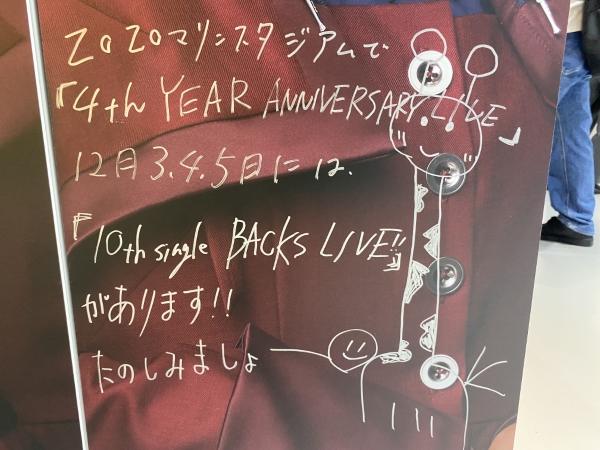 ZOZOマリンスタジアムで
『4th YEAR ANNIVERSARY LIVE』
12月3.4.5日には、
『10th single BACKS LIVE!!』
があります!!
たのしみましょ